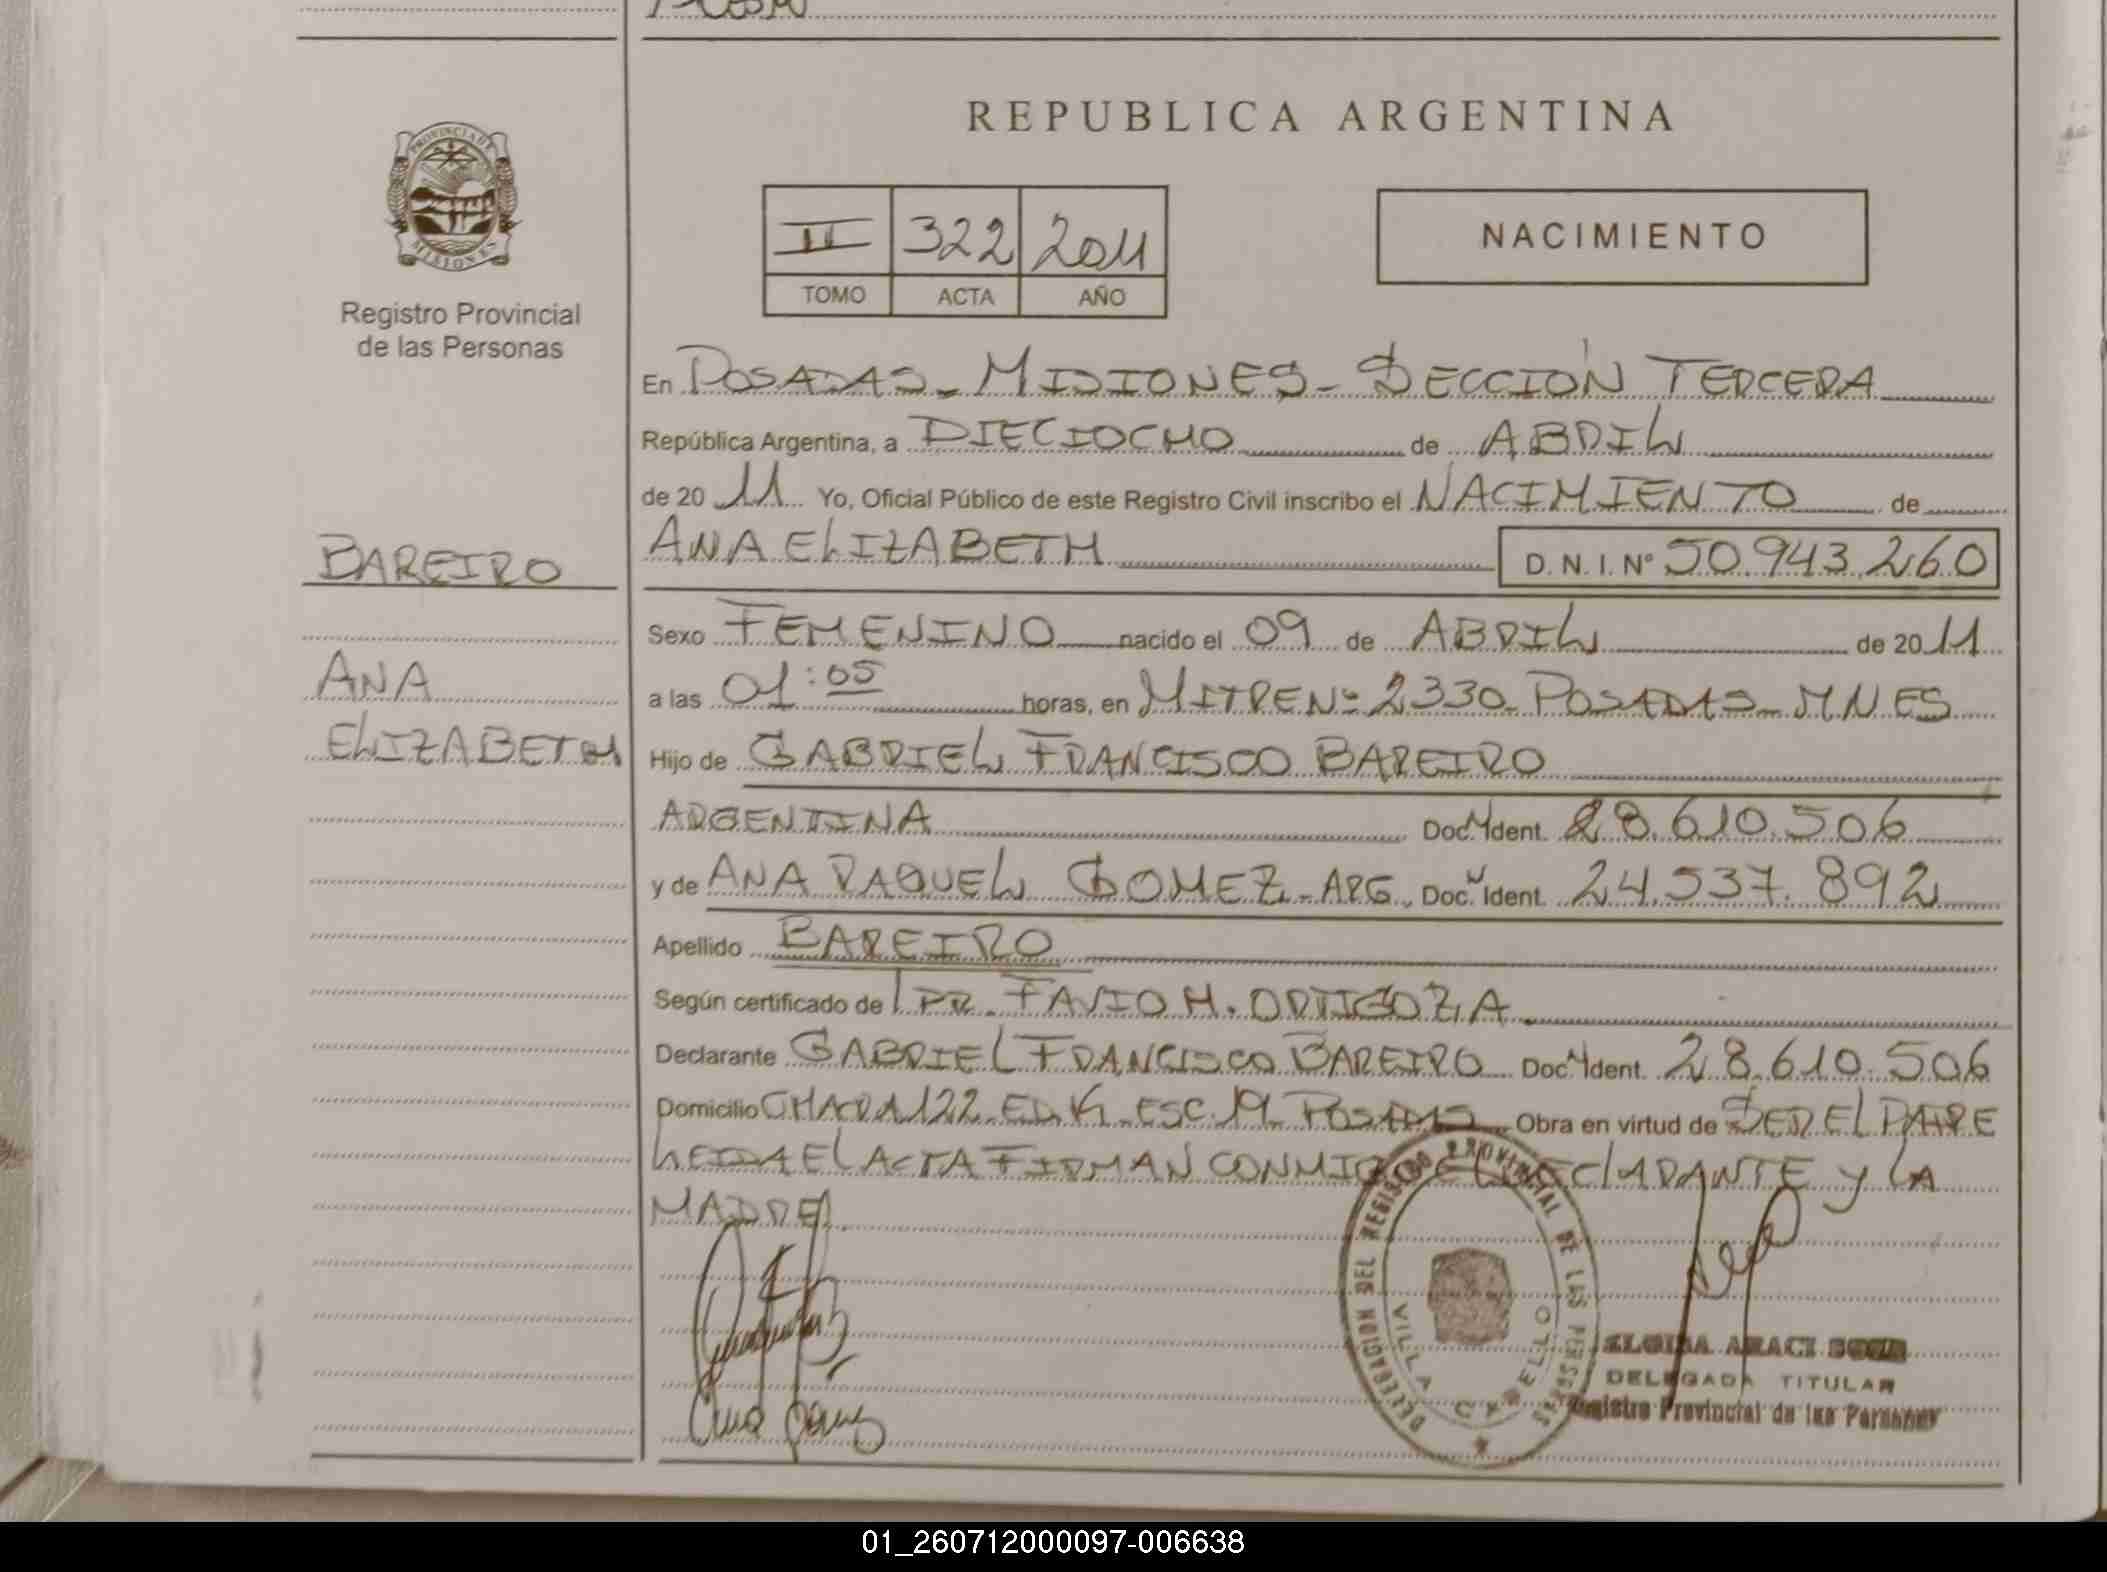 REPUBLICA ARGENTINA
PROVINCIA DE
MISIONES
Registro Provincial
de las Personas
II 322 2011
TOMO ACTA AÑO
NACIMIENTO
En POSADAS - MISIONES - SECCIÓN TERCERA
República Argentina, a DIECIOCHO de ABRIL
de 20 11 Yo, Oficial Público de este Registro Civil inscribo el NACIMIENTO de
ANA ELIZABETH D.N.I. Nº 50.943.260
BAREIRO
ANA
ELIZABETH
Sexo FEMENINO nacido el 09 de ABRIL de 20 11
a las 01:05 horas, en MITRE Nº 2330 - POSADAS - MNES
Hijo de GABRIEL FRANCISCO BAREIRO
ARGENTINA Doc. Ident. 28.610.506
y de ANA RAQUEL GOMEZ - ARG. Doc. Ident. 24.537.892
Apellido BAREIRO
Según certificado de DR. FAVIO H. ORTIGOZA
Declarante GABRIEL FRANCISCO BAREIRO Doc. Ident. 28.610.506
Domicilio CHACRA 122 - ED. K - ESC. 19 - POSADAS Obra en virtud de SER EL PADRE
LEIDA EL ACTA FIRMAN CONMIGO EL DECLARANTE Y LA
MADRE.
DELEGACION DEL REGISTRO PROVINCIAL DE LAS PERSONAS
VILLA CABELLO
Ana Gomez
ELOISA ARACI
DELEGADA TITULAR
Registro Provincial de las Personas
01_260712000097-006638